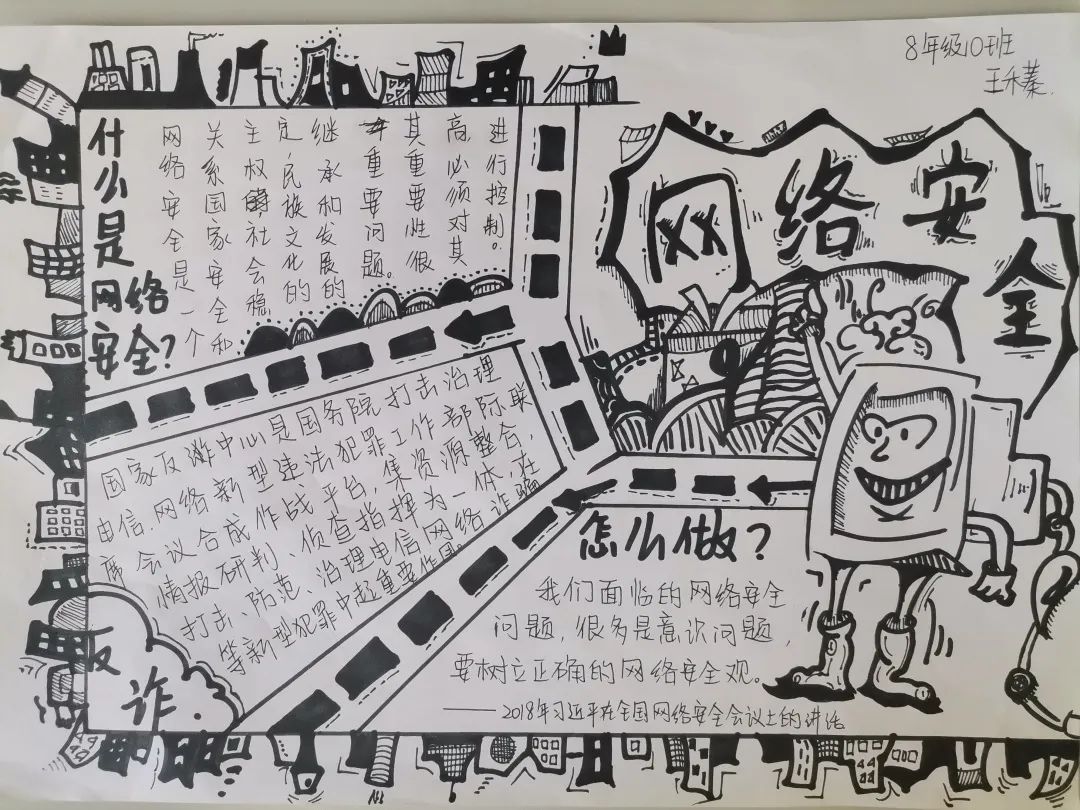 8年级10班
王禾蓁.
网络安
全
什么是
网络
安全？
网络安全是一个
关系国家安全和
主权社会稳
定，民族文化的
继承和发展的
重要问题。
其重要性很
高，必须对其
进行控制。
国家反诈中心是国务院打击治理
电信网络新型违法犯罪工作部际联
席会议合成作战平台，集资源整合，
情报研判、侦查指挥为一体，在
打击、防范、治理电信网络诈骗
等新型犯罪中起重要作用
反
诈.
怎么做？
我们面临的网络安全
问题，很多是意识问题，
要树立正确的网络安全观。
——2018年习近平在全国网络安全会议上的讲话